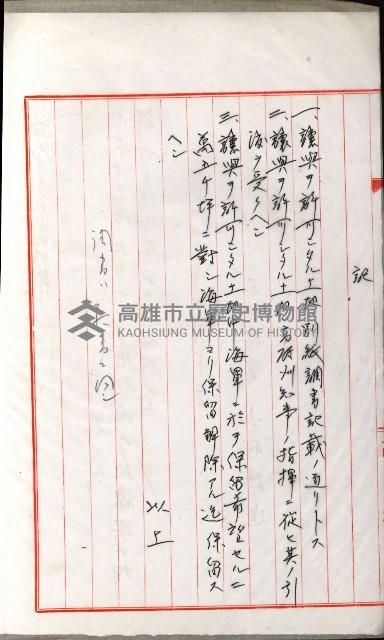 記
一、讓與ヲ許可シタル土地別紙調書記載ノ通リトス
二、讓與ヲ許可シタル土地ハ高雄州知事ノ指揮ニ從ヒ其ノ引
渡ヲ受クヘシ
三、讓與ヲ許可シタル土地中海軍ニ於テ保留希望セル二
萬五千坪ニ對シ海軍ヨリ保留解除アル迄保留ス
ヘシ
以上
調書ハ
高雄市立歷史博物館
KAOHSIUNG MUSEUM OF HISTORY